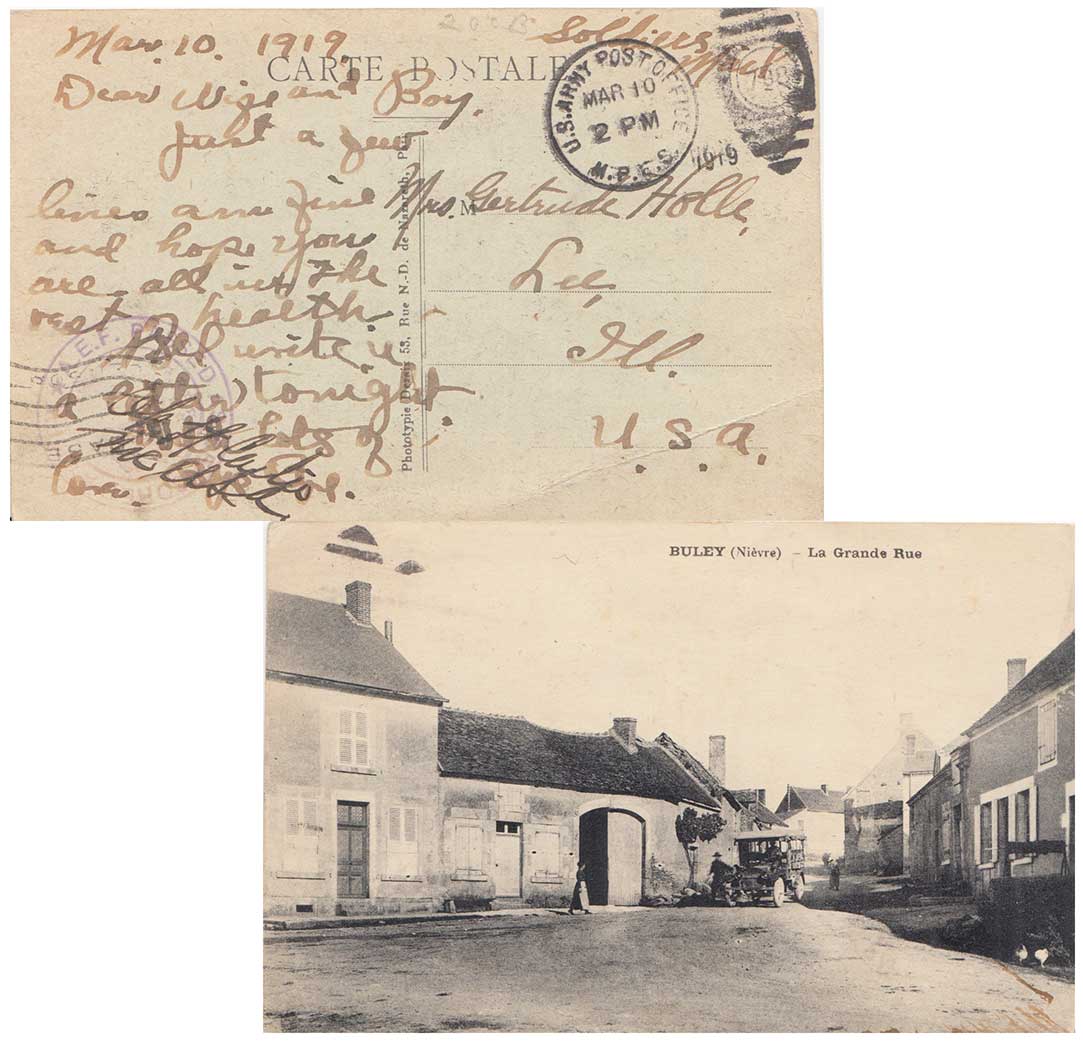 Mar. 10. 1919
Soldiers
Mail
CARTE POSTALE
U.S. ARMY POST OFFICE
MAR 10
2 PM
M.P.E.S.
1919
798
Dear Wife and Boy.
Just a few
lines am fine
and hope you
are all in the
best of health.
Will write
a letter tonight.
lots of
love. Joe.
Mrs. M Gertrude Holle,
Lee,
Ill.
U.S.A.
Phototypie Demis 53, Rue N.-D. de Nazareth,
A.E.F. PASSED
BULEY (Nièvre) – La Grande Rue